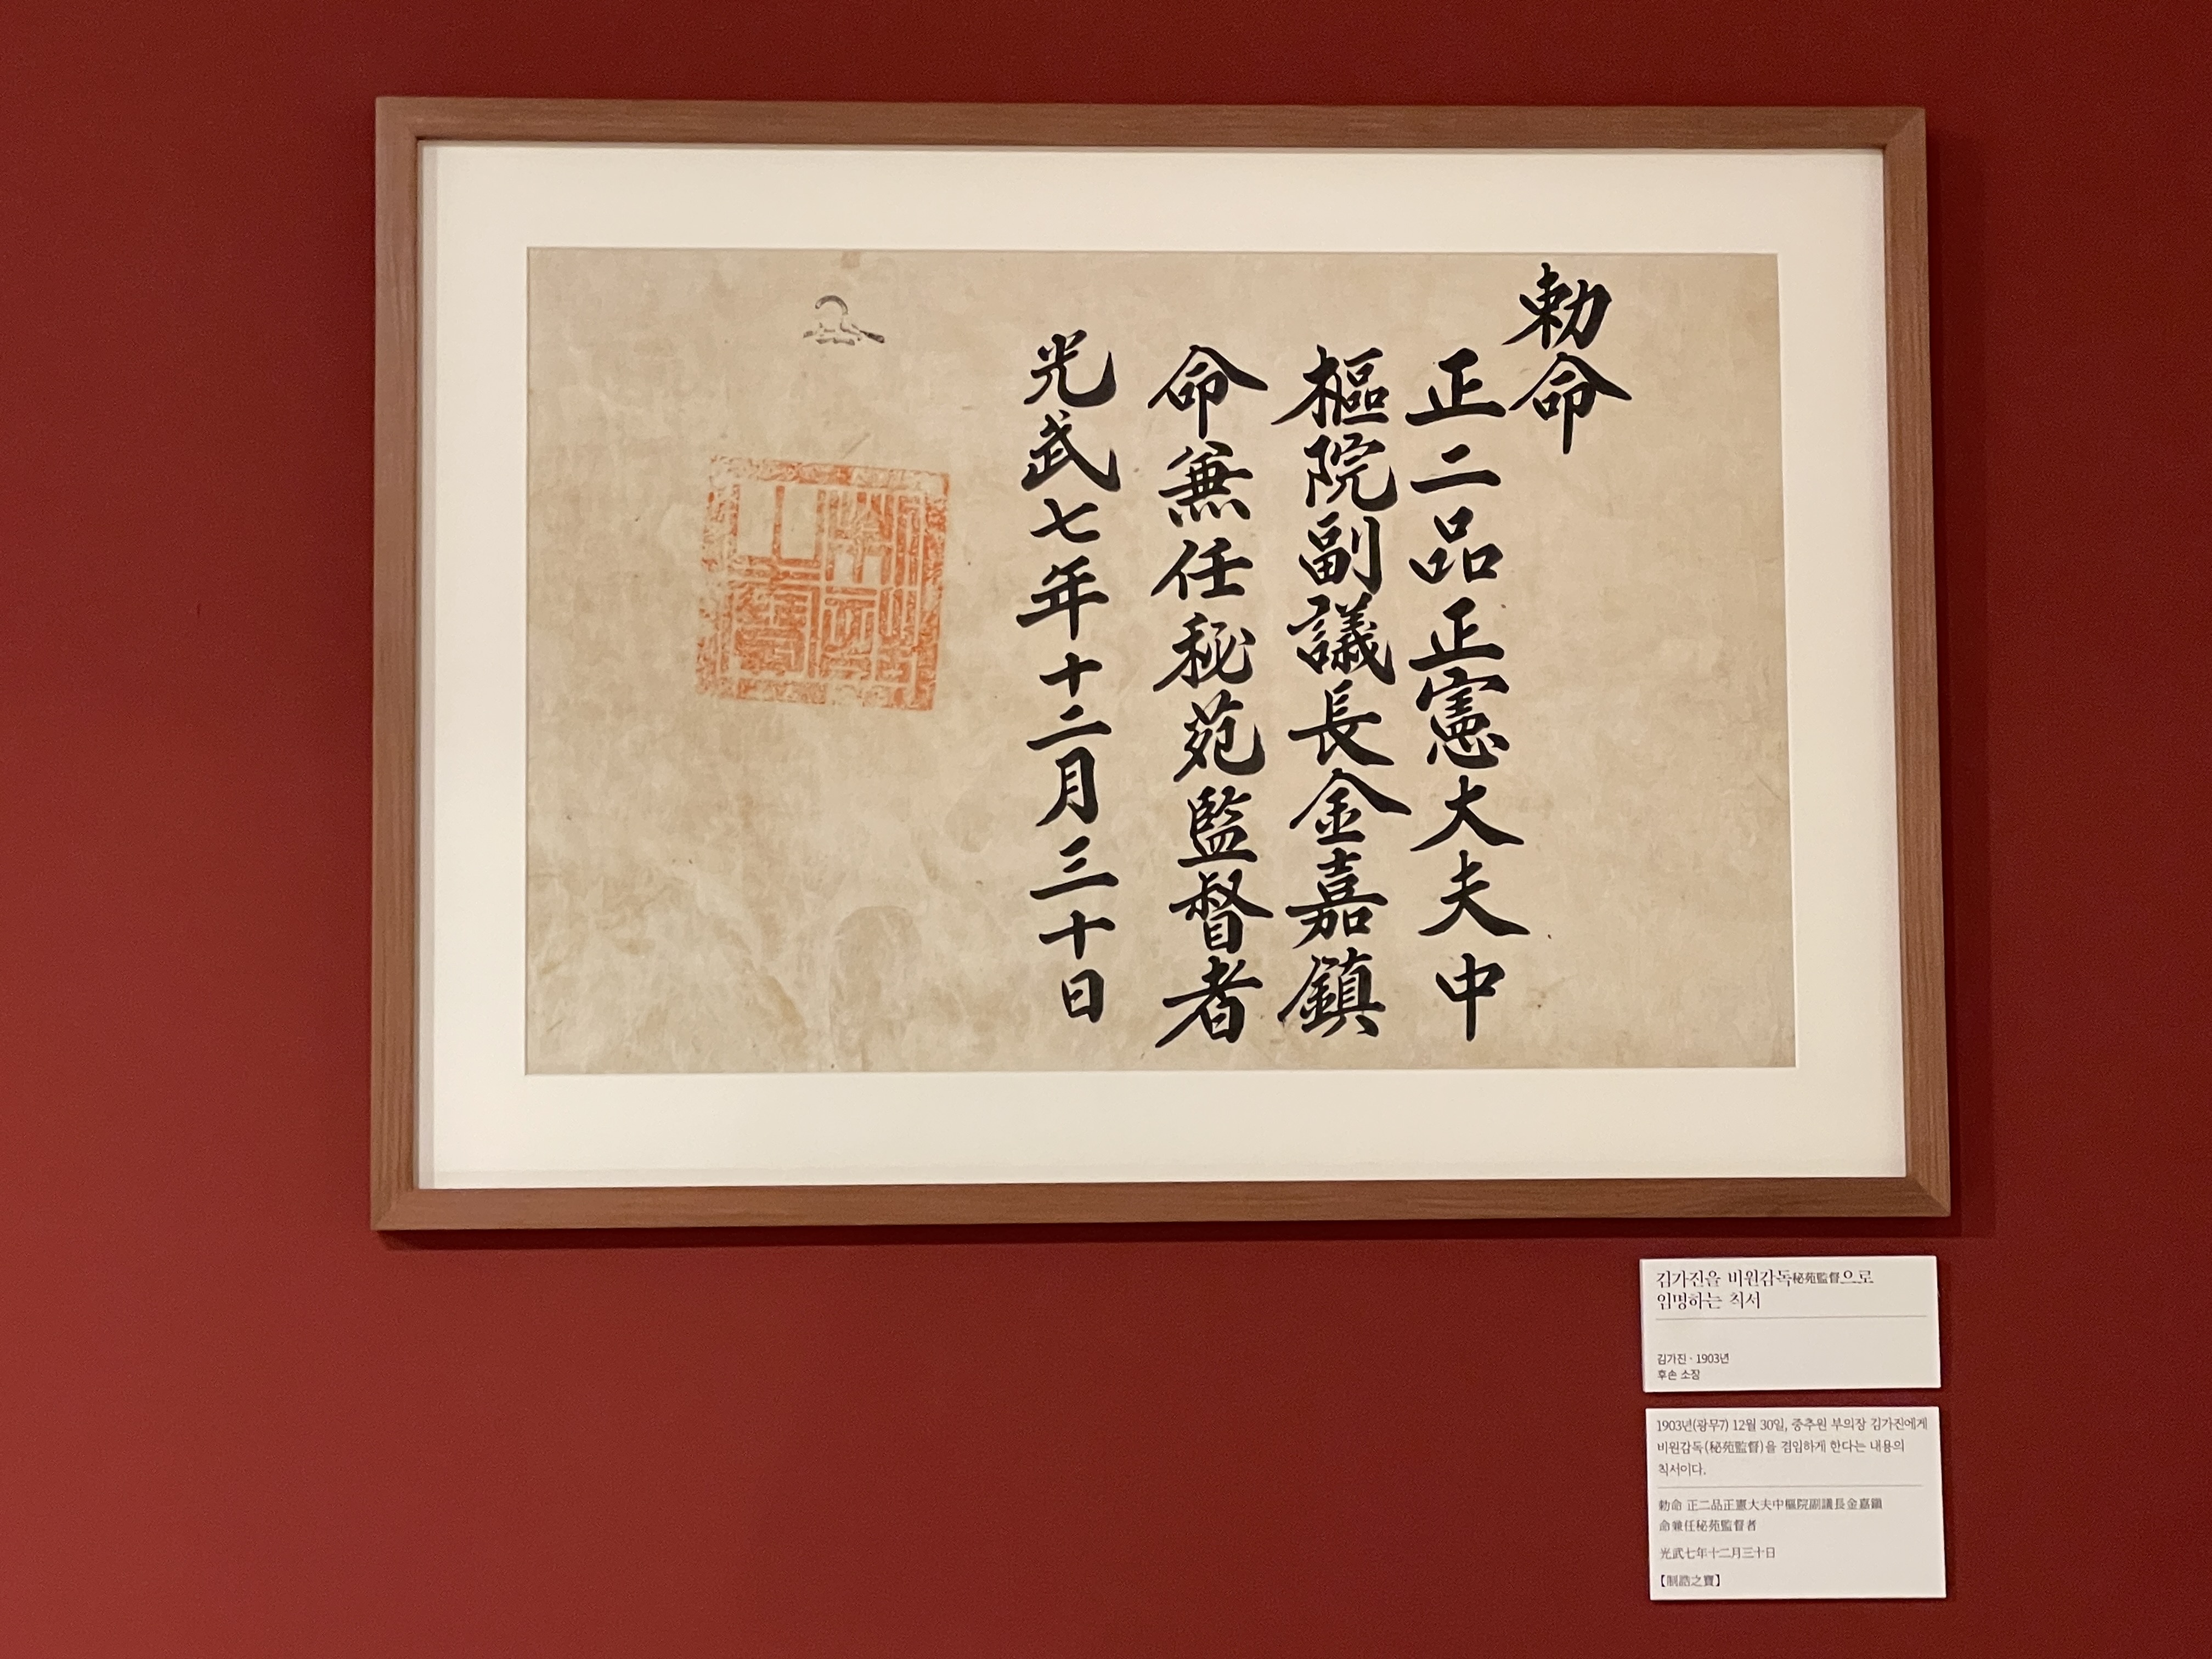 勅命
正二品正憲大夫中
樞院副議長金嘉鎮
命兼任秘苑監督者
光武七年十二月三十日
김가진을 비원감독秘苑監督으로
임명하는 칙서
김가진 · 1903년
후손 소장
1903년(광무7) 12월 30일, 중추원 부의장 김가진에게
비원감독(秘苑監督)을 겸임하게 한다는 내용의
칙서이다.
勅命 正二品正憲大夫中樞院副議長金嘉鎭
命兼任秘苑監督者
光武七年十二月三十日
【制誥之寶】